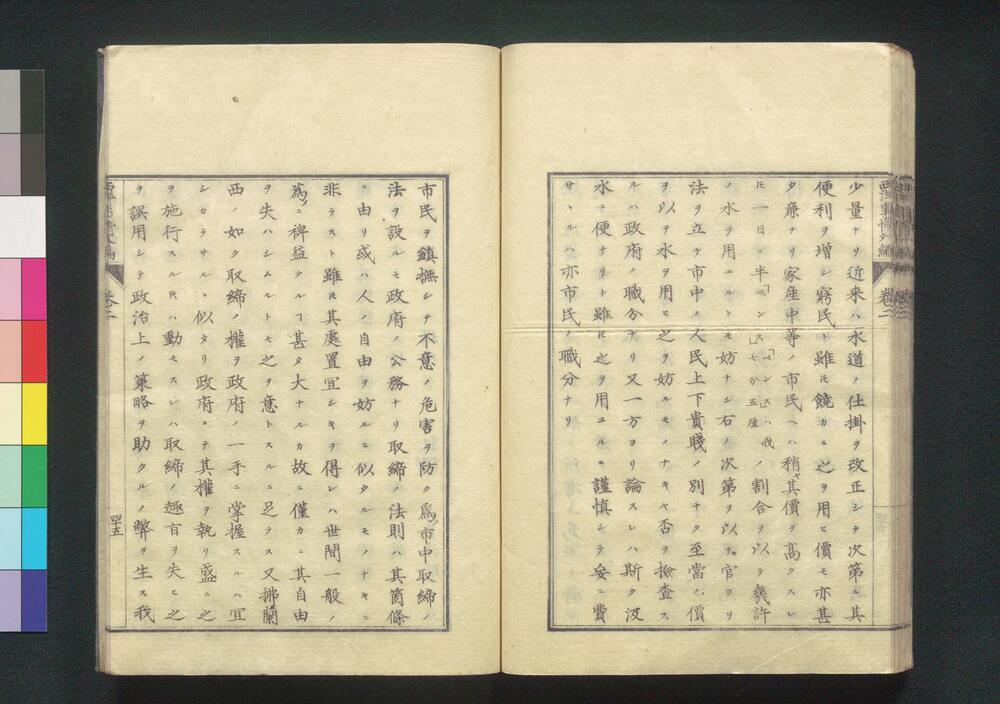 少量ナリ近来ハ水道ノ仕掛ヲ改正シテ次第ニ其
便利ヲ増シ窮民ト雖𪜈饒カニ之ヲ用ヒ價モ亦甚
タ廉ナリ家産中等ノ市民ヘハ稍〻其價ヲ高クスレ
𪜈一日ニ半「ペンス」「ペンス」ハ我七分五厘ノ割合ヲ以テ幾許
ノ水ヲ用ユルトモ妨ナシ右ノ次第ヲ以テ官ヨリ
法ヲ立テ市中ノ人民上下貴賤ノ別ナク至當ノ價
ヲ以テ水ヲ用ヒ之ヲ妨ルモノナキヤ否ヲ撿査ス
ルハ政府ノ職分ナリ又一方ヨリ論スレハ斯ク汲
水ニ便ナリト雖𪜈之ヲ用ユルニ謹慎シテ妄ニ費
サヽルハ亦市民ノ職分ナリ
西洋事情外編
卷二
市民ヲ鎮撫シテ不意ノ危害ヲ防ク為〆市中取締ノ
法ヲ設ルモ政府ノ公務ナリ取締ノ法則ハ其箇條
ニ由リ或ハ人ノ自由ヲ妨ルニ似タルモノナキニ
非ラスト雖𪜈其處置宜シキヲ得レハ世間一般ノ
為〆ニ裨益タルヿ甚タ大ナルカ故ニ僅カニ其自由
ヲ失ハシムルトモ之ヲ意トスルニ足ラス又拂蘭
西ノ如ク取締ノ權ヲ政府ノ一手ニ掌握スルハ宜
シカラサルニ似タリ政府ニテ其權ヲ執リ盛ニ之
ヲ施行スル𪜈ハ動モスレハ取締ノ趣旨ヲ失ヒ之
ヲ誤用シテ政治上ノ策略ヲ助クルノ弊ヲ生ス我
卷二
四十五